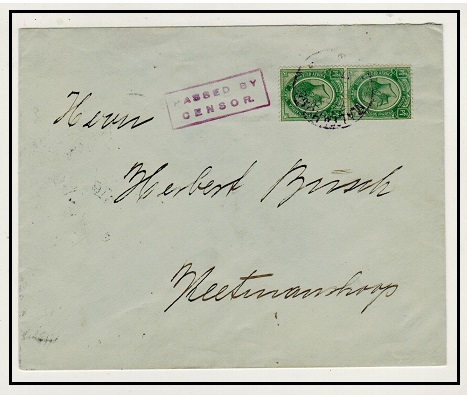 PASSED BY
CENSOR.
Herrn
Herbert Büsch
Keetmanshoop